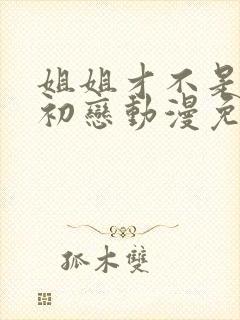 姐姐才不是
初戀動漫免
孤木雙